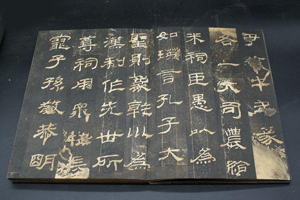 各一大司農給
米祠臣愚以爲
如瑛言孔子大
聖則象乾川爲
漢制作先世所
尊祠用衆牲長
寵子孫敬恭明